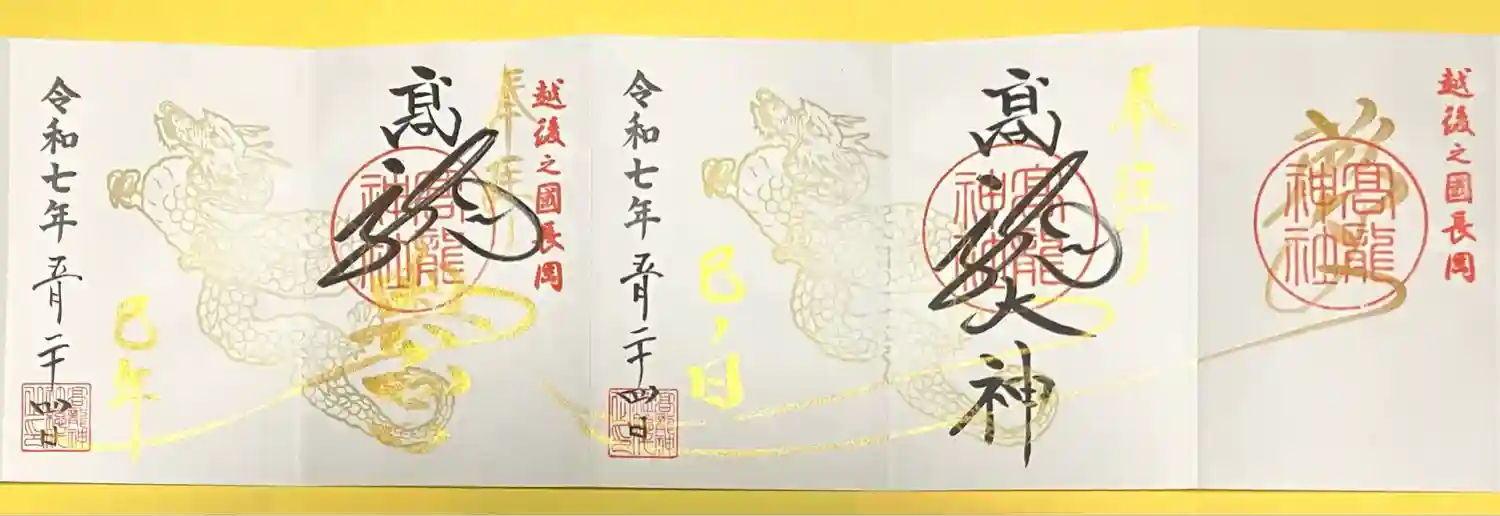 越後之國長岡
髙龍神社
奉拝
髙龍大神
髙龍神社
巳ノ日
令和七年 五月二十四日
越後之國長岡
奉拝
髙龍
髙龍神社
巳年
令和七年 五月二十四日